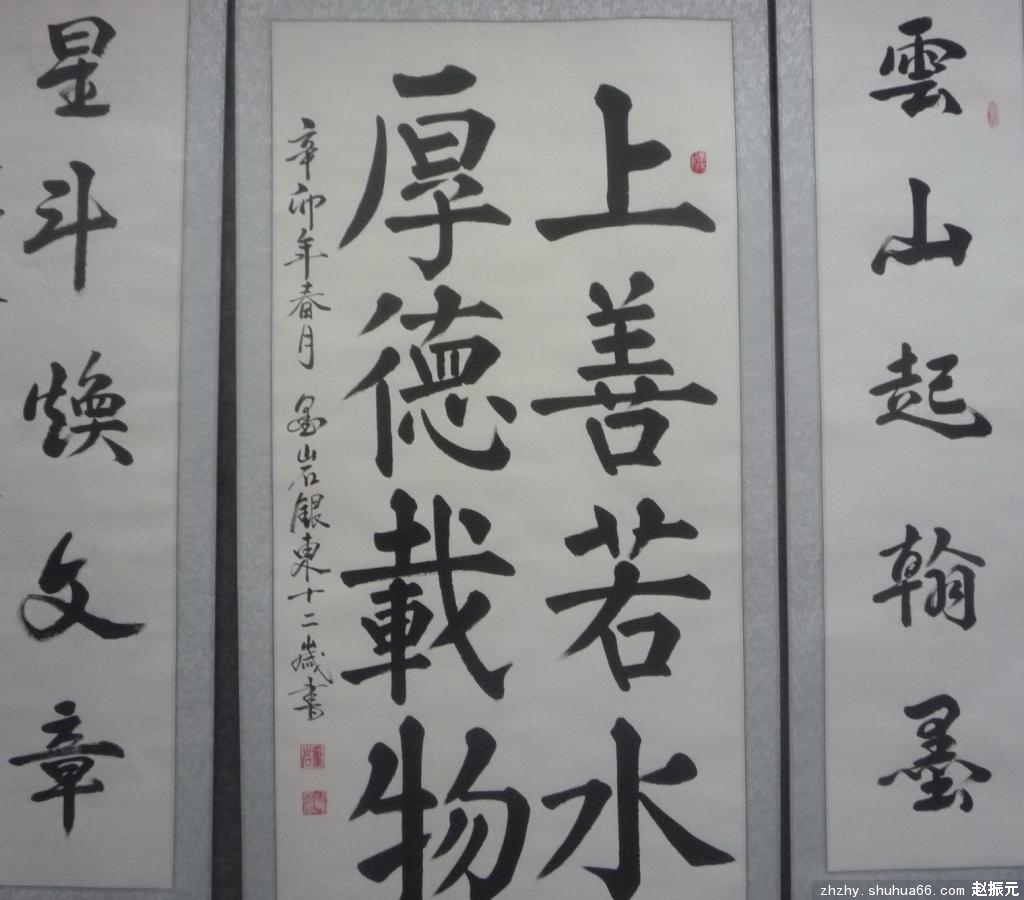 雲山起翰墨
上善若水
厚德載物
辛卯年春月 墨山岩銀東十二歲書
星斗煥文章
zhzhy.shuhua66.com 赵振元